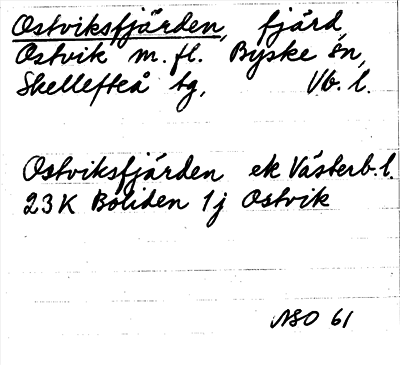 Ostviksfjärden, fjärd,
Ostvik m.fl. Byske sn,
Skellefteå tg, Vb. l.
Ostviksfjärden ek Västerb.l.
23K Boliden 1j Ostvik
NSO 61